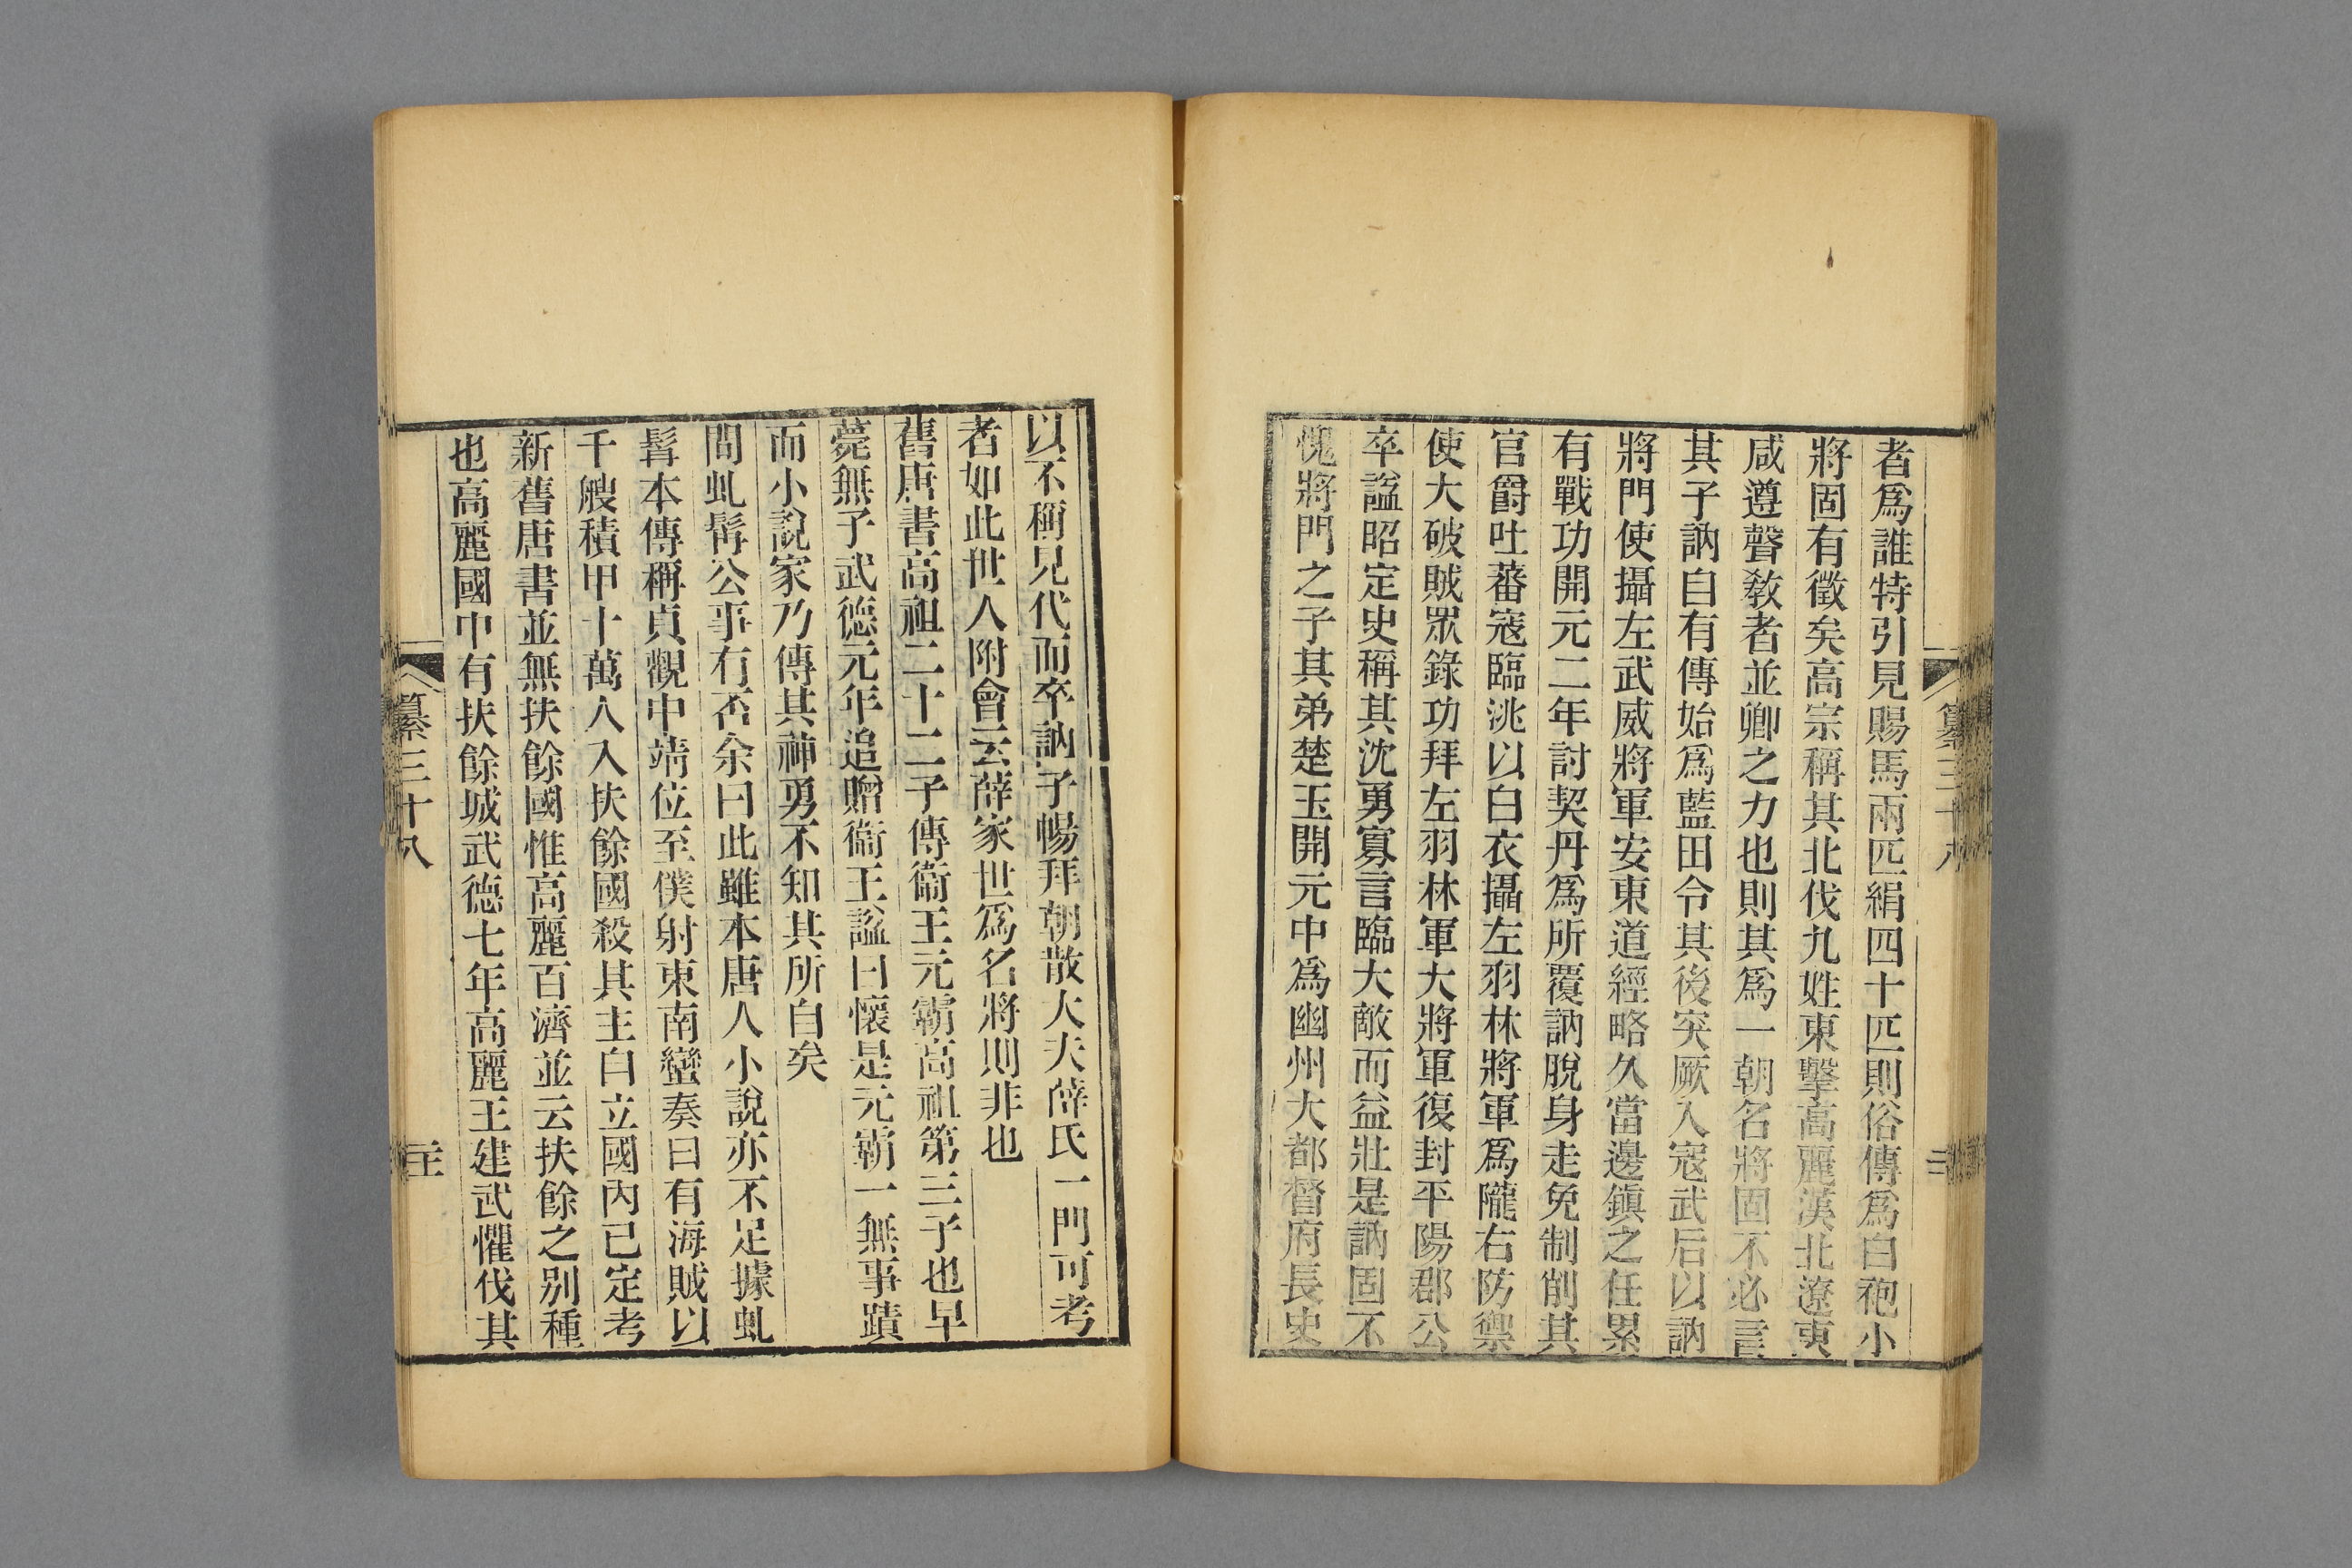 者爲誰特引見賜馬兩匹絹四十匹則俗傳爲白袍小
將固有徵矣高宗稱其北伐九姓東擊高麗漢北遼東
咸遵聲敎者並卿之力也則其爲一朝名將固不必言
其子訥自有傳始爲藍田令其後突厥入寇武后以訥
將門使攝左武威將軍安東道經略久當邊鎭之任累
有戰功開元二年討契丹爲所覆訥脫身走免制削其
官爵吐蕃寇臨洮以白衣攝左羽林將軍爲隴右防禦
使大破賊眾錄功拜左羽林軍大將軍復封平陽郡公
卒諡昭定史稱其沈勇寡言臨大敵而益壯是訥固不
愧將門之子其弟楚玉開元中爲幽州大都督府長史
纂三十八
以不稱見代而卒訥子暢拜朝散大夫薛氏一門可考
者如此世人附會云薛家世爲名將則非也
舊唐書高祖二十二子傳衞王元霸高祖第三子也早
薨無子武德元年追贈衞王諡曰懷是元霸一無事蹟
而小說家乃傳其神勇不知其所自矣
問虬髯公事有否余曰此雖本唐人小說亦不足據虬
髯本傳稱貞觀中靖位至僕射東南蠻奏曰有海賊以
千艘積甲十萬人入扶餘國殺其主自立國內已定考
新舊唐書並無扶餘國惟高麗百濟並云扶餘之别種
也高麗國中有扶餘城武德七年高麗王建武懼伐其
纂三十八